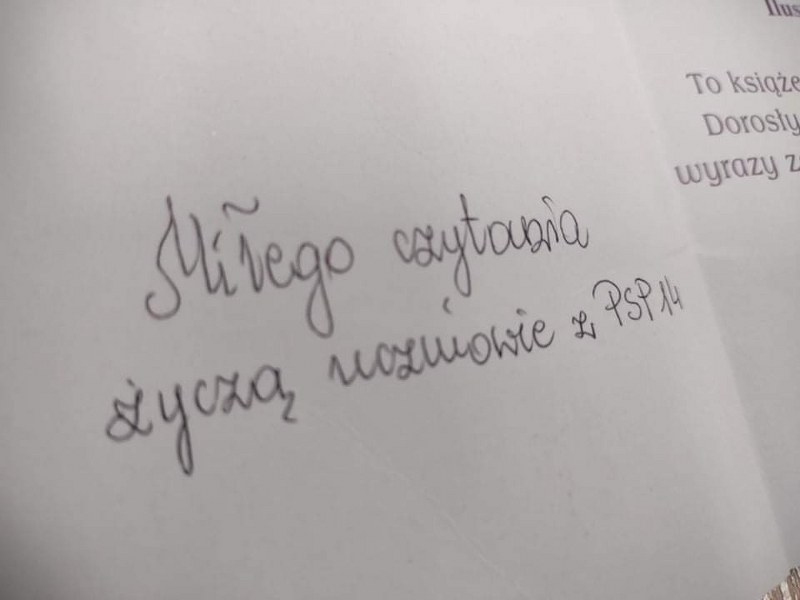 Ilus
To książe
Dorosły
wyrazy z
Miłego czytania
życzą uczniowie z PSP 14